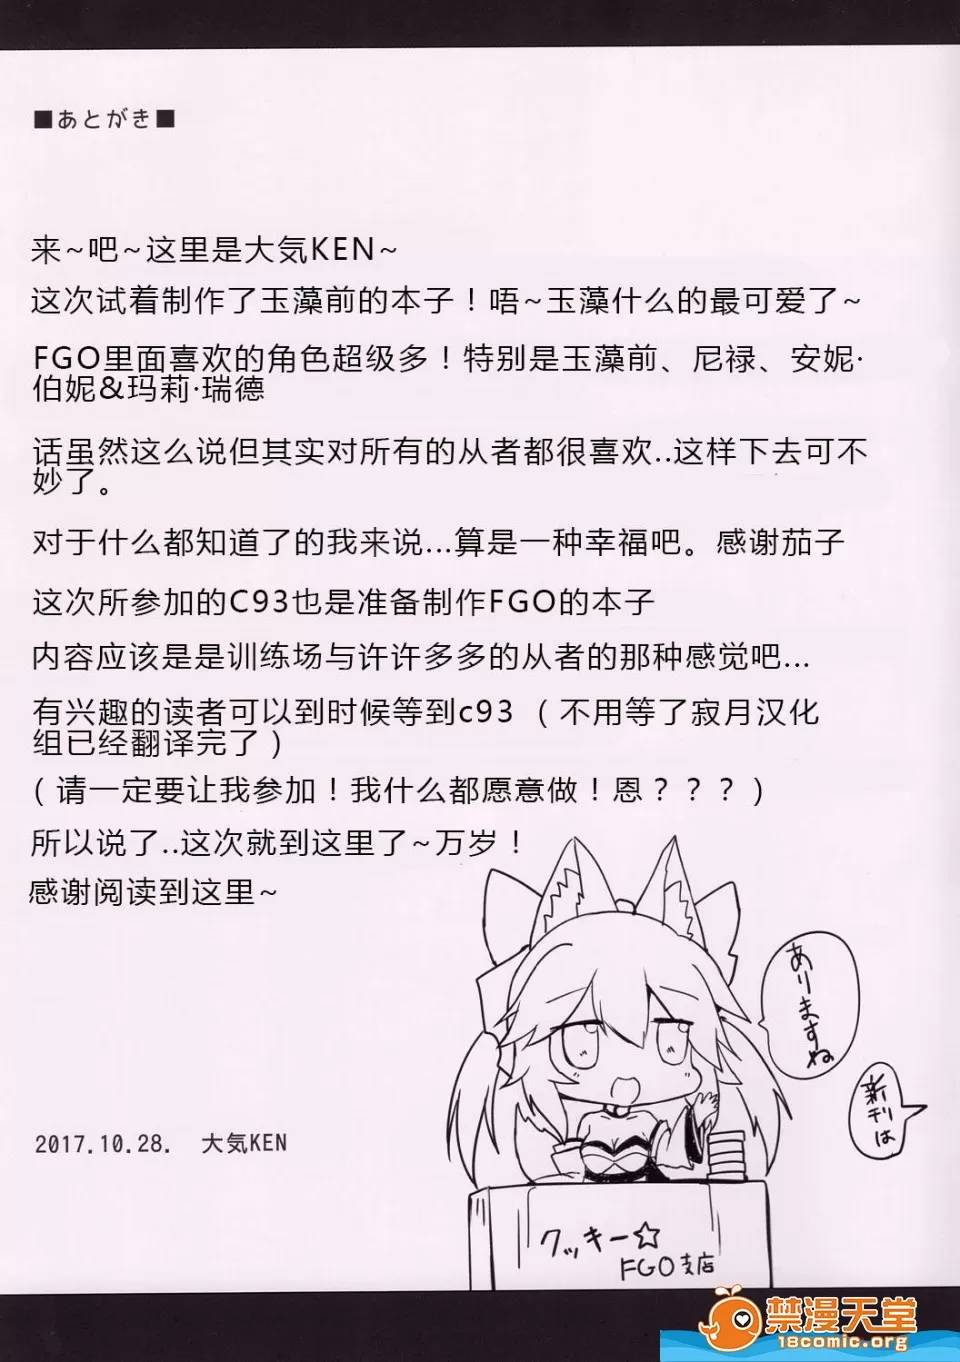 ■あとがき■
来~吧~这里是大気KEN~
这次试着制作了玉藻前的本子！唔~玉藻什么的最可爱了~
FGO里面喜欢的角色超级多！特别是玉藻前、尼禄、安妮·
伯妮&玛莉·瑞德
话虽然这么说但其实对所有的从者都很喜欢..这样下去可不
妙了。
对于什么都知道了的我来说...算是一种幸福吧。感谢茄子
这次所参加的C93也是准备制作FGO的本子
内容应该是是训练场与许许多多的从者的那种感觉吧...
有兴趣的读者可以到时候等到c93 （不用等了寂月汉化
组已经翻译完了）
（请一定要让我参加！我什么都愿意做！恩？？？）
所以说了..这次就到这里了~万岁！
感谢阅读到这里~
ありますね
新刊は
2017.10.28. 大気KEN
クッキー☆
FGO支店
禁漫天堂
18comic.org